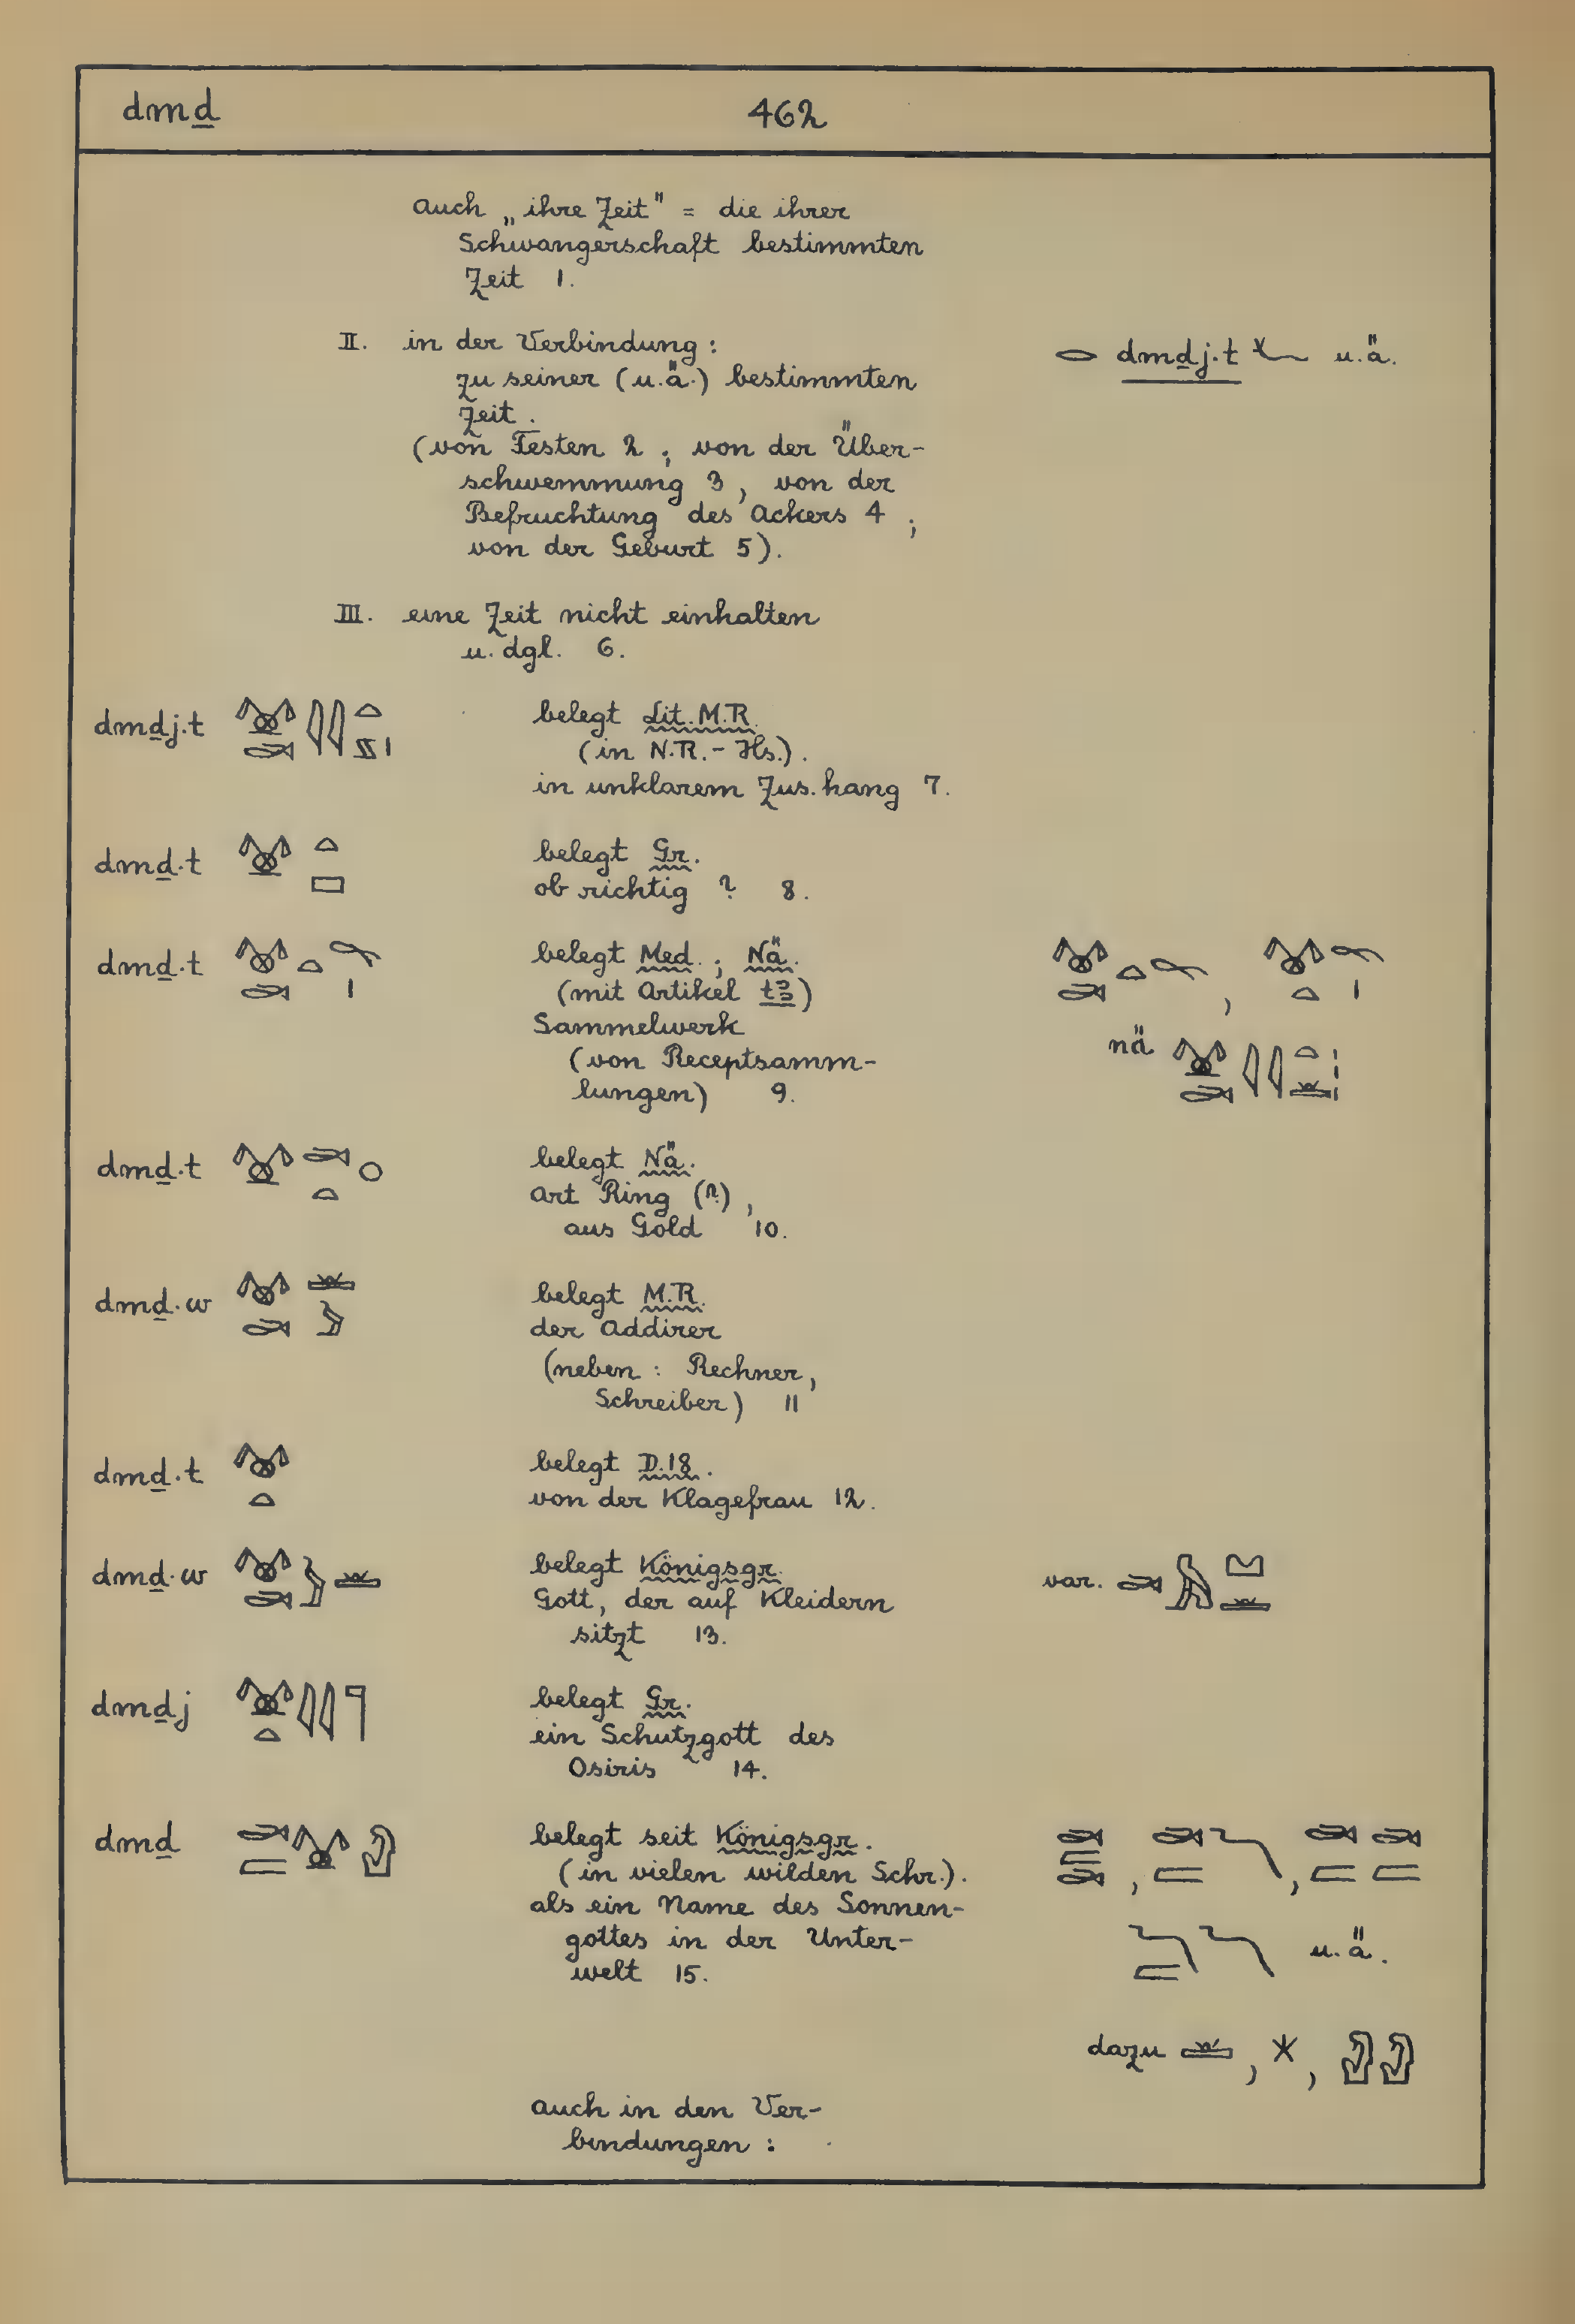 dmḏ 462
auch „ihre Zeit" = die ihrer
Schwangerschaft bestimmten
Zeit 1.
II. in der Verbindung: dmḏj.t u.ä.
zu seiner (u.ä.) bestimmten
Zeit.
(von Festen 2; von der Über-
schwemmung 3, von der
Befruchtung des Ackers 4;
von der Geburt 5).
III. eine Zeit nicht einhalten
u. dgl. 6.
dmḏj.t belegt Lit. M.R.
(in N.R.-Hs.).
in unklarem Zus.hang 7.
dmḏ.t belegt Gr.
ob richtig? 8.
dmḏ.t belegt Med.; Nä.
(mit Artikel tꜣ)
Sammelwerk
(von Receptsamm- nä
lungen) 9.
dmḏ.t belegt Nä.
Art Ring (?),
aus Gold 10.
dmḏ.w belegt M.R.
der Addirer
(neben: Rechner,
Schreiber) 11
dmḏ.t belegt D.18.
von der Klagefrau 12.
dmḏ.w belegt Königsgr. var.
Gott, der auf Kleidern
sitzt 13.
dmḏj belegt Gr.
ein Schutzgott des
Osiris 14.
dmḏ belegt seit Königsgr.
(in vielen wilden Schr.).
als ein Name des Sonnen-
gottes in der Unter- u.ä.
welt 15.
dazu
auch in den Ver-
bindungen: